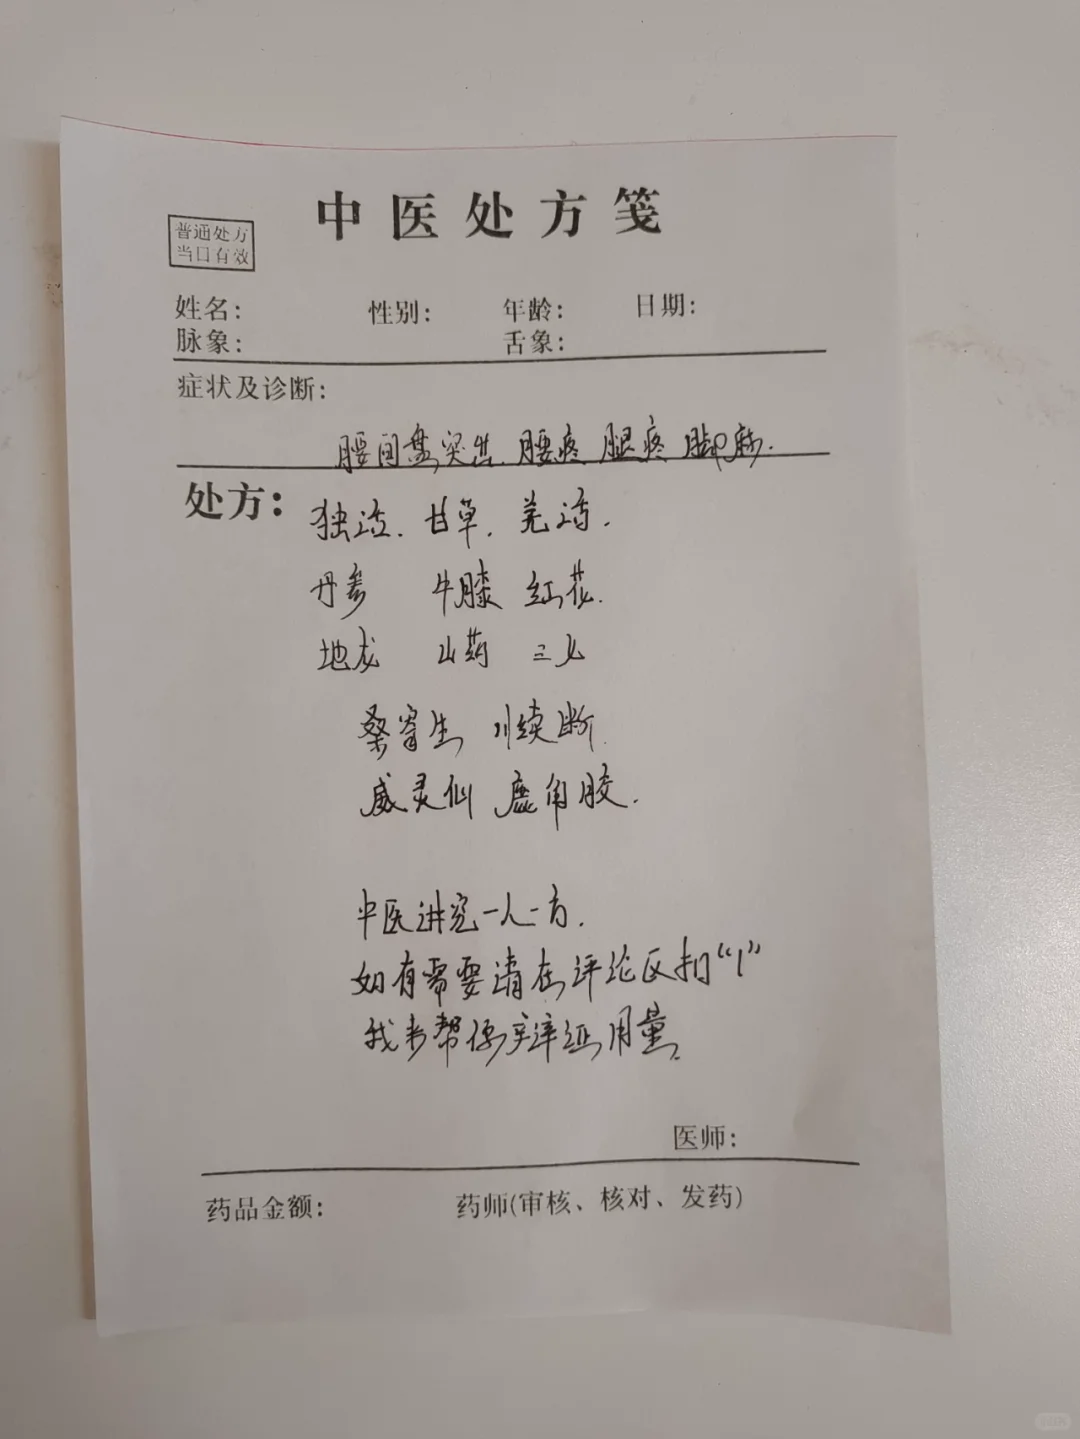 中医处方笺
普通处方
当日有效
姓名： 性别： 年龄： 日期：
脉象： 舌象：
症状及诊断：
腰间盘突出.腰疼 腿疼 脚麻.
处方：
独活.甘草.羌活.
丹参 牛膝 红花.
地龙 山药 三七
桑寄生 川续断
威灵仙 鹿角胶.
中医讲究一人一方.
如有需要请在评论区扣“1”
我来帮你辩证用量.
医师：
药品金额： 药师(审核、核对、发药)